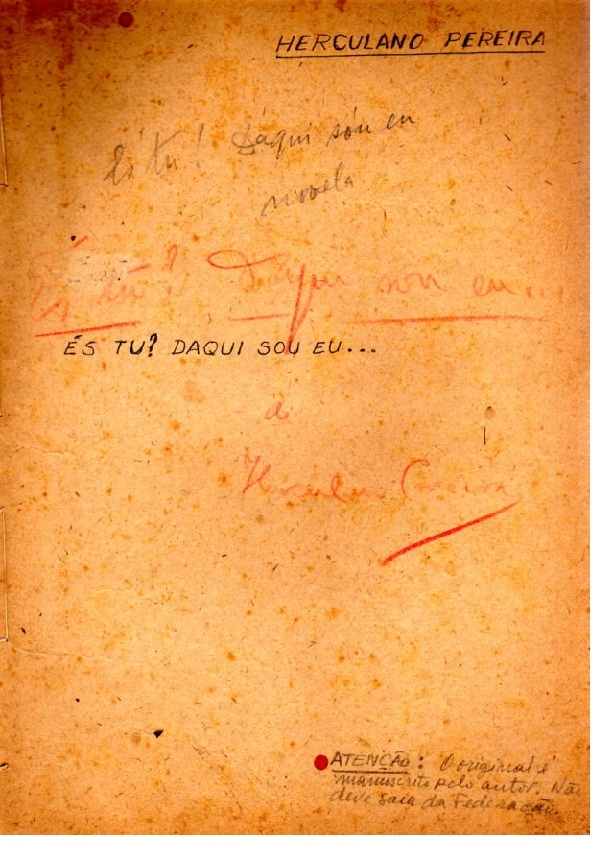 HERCULANO PEREIRA
És tu! Daqui sou eu
novela
És tu? Daqui sou eu...
ÉS TU? DAQUI SOU EU...
a
ATENÇÃO: O original é
manuscrito pelo autor. Não
deve saia da Federação.